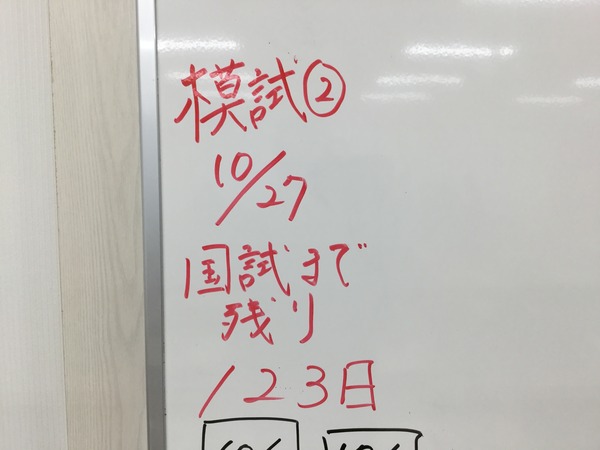 模試②
10/27
国試まで
残り
123日